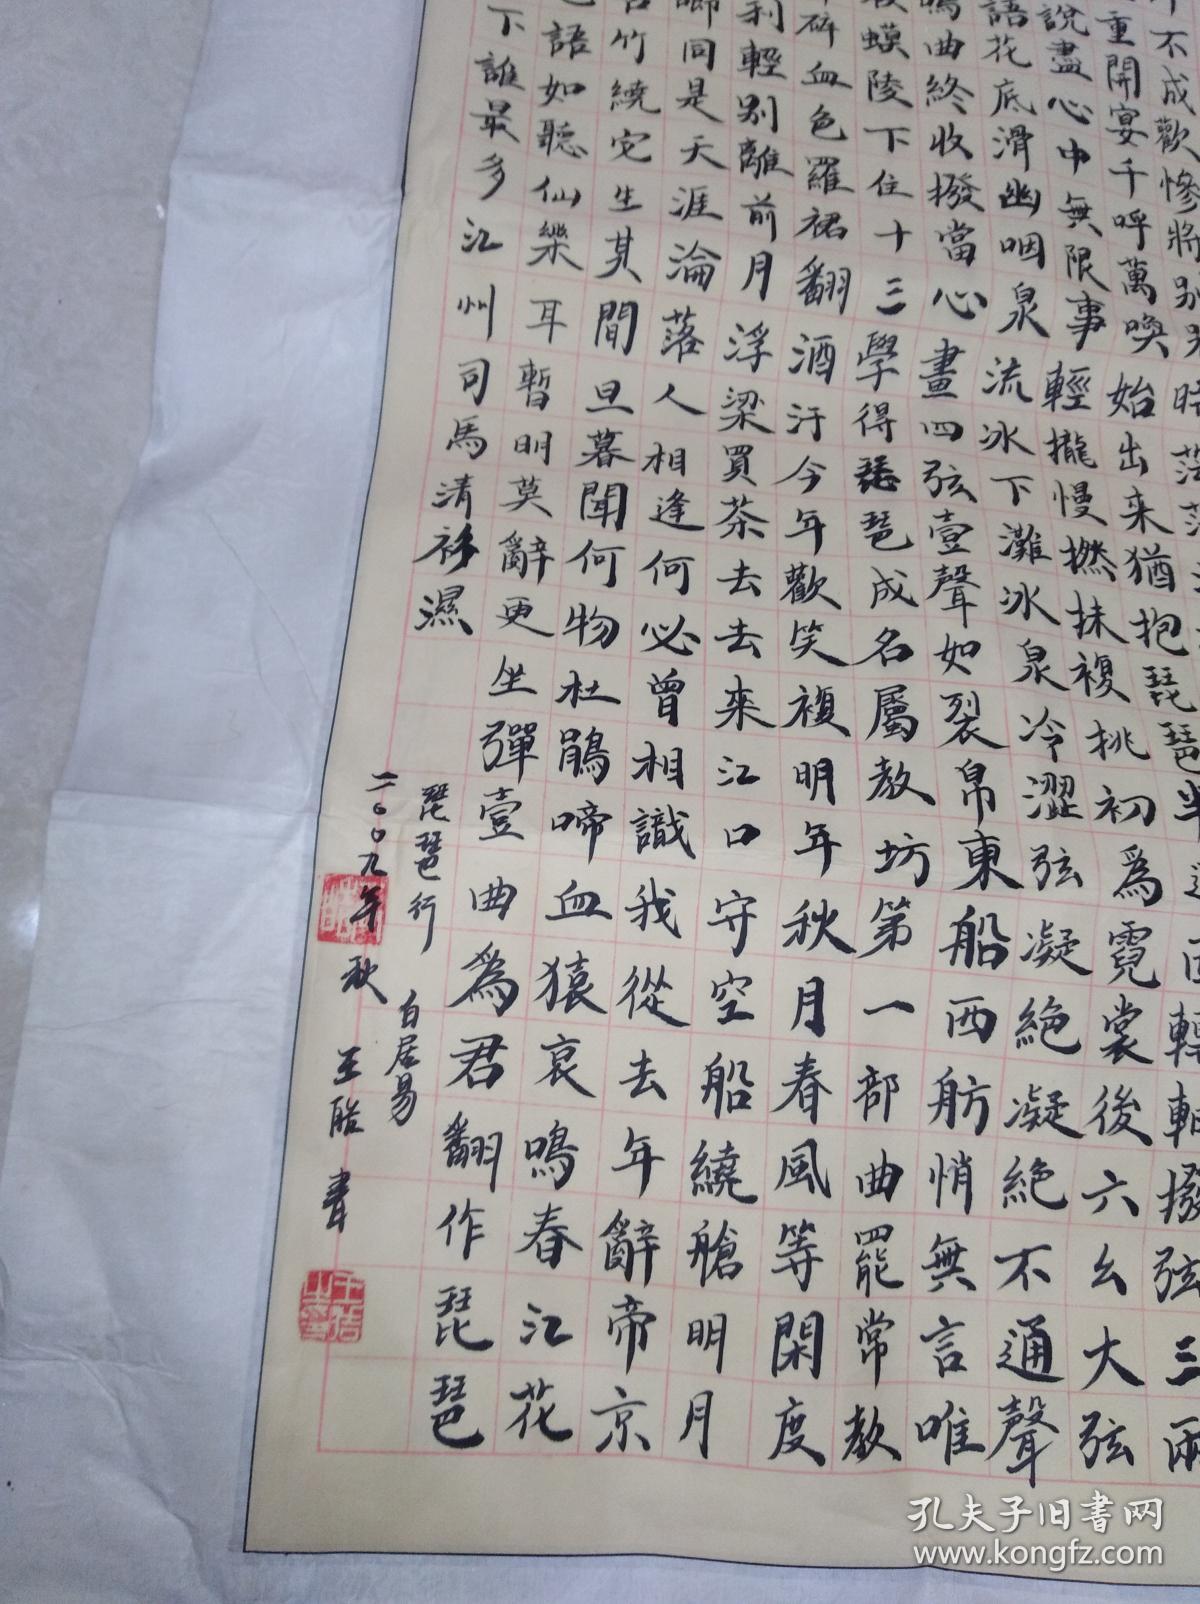 不成歡慘將別
重開宴千呼萬喚始出来猶抱琵琶半
說盡心中無限事輕攏慢撚抹複挑初爲霓裳後六幺大弦
語花底滑幽咽泉流冰下灘冰泉冷澀弦凝絶凝絶不通聲
鳴曲終收撥當心畫四弦壹聲如裂帛東船西舫悄無言唯
蟆陵下住十三學得琵琶成名屬教坊第一部曲罷常教
碎血色羅裙翻酒汙今年歡笑複明年秋月春風等閑度
利輕別離前月浮梁買茶去去來江口守空船繞艙明月
唧同是天涯淪落人相逢何必曾相識我從去年辭帝京
竹繞宅生其間旦暮聞何物杜鵑啼血猿哀鳴春江花
語如聽仙樂耳暫明莫辭更坐彈壹曲為君翻作琵琶
下誰最多江州司馬清衫濕
琵琶行 白居易
二〇〇九年秋 王 書
孔夫子旧书网
www.kongfz.com